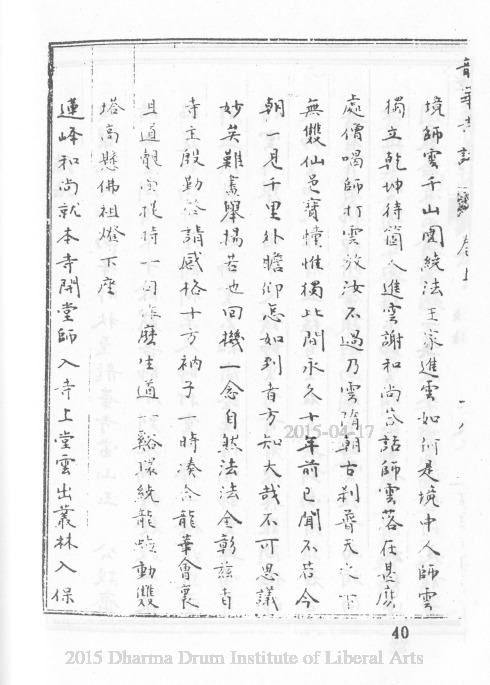 龍華寺志 卷上 一八
境師雲千山圍統法王家進雲如何是境中人師雲
獨立乾坤待箇人進雲謝和尚答話師雲落在甚麼
處僧喝師打雲放汝不過乃雲隋朝古剎普天之下
無雙仙邑寶幢惟獨此間永久十年前已聞不若今
朝一見千里外瞻仰怎如到者方知大哉不可思議
妙矣難盡舉揚若也回機一念自然法法全彰玆者
寺主殷勤啓請感格十方衲子一時湊合龍華會裏
且道覿面提持一句作麼生道 谿環統龍蛇動雙
塔高懸佛祖燈下座
蓮峰和尚就本寺開堂師入寺上堂雲出叢林入保
2015-04-17
40
2015 Dharma Drum Institute of Liberal Arts